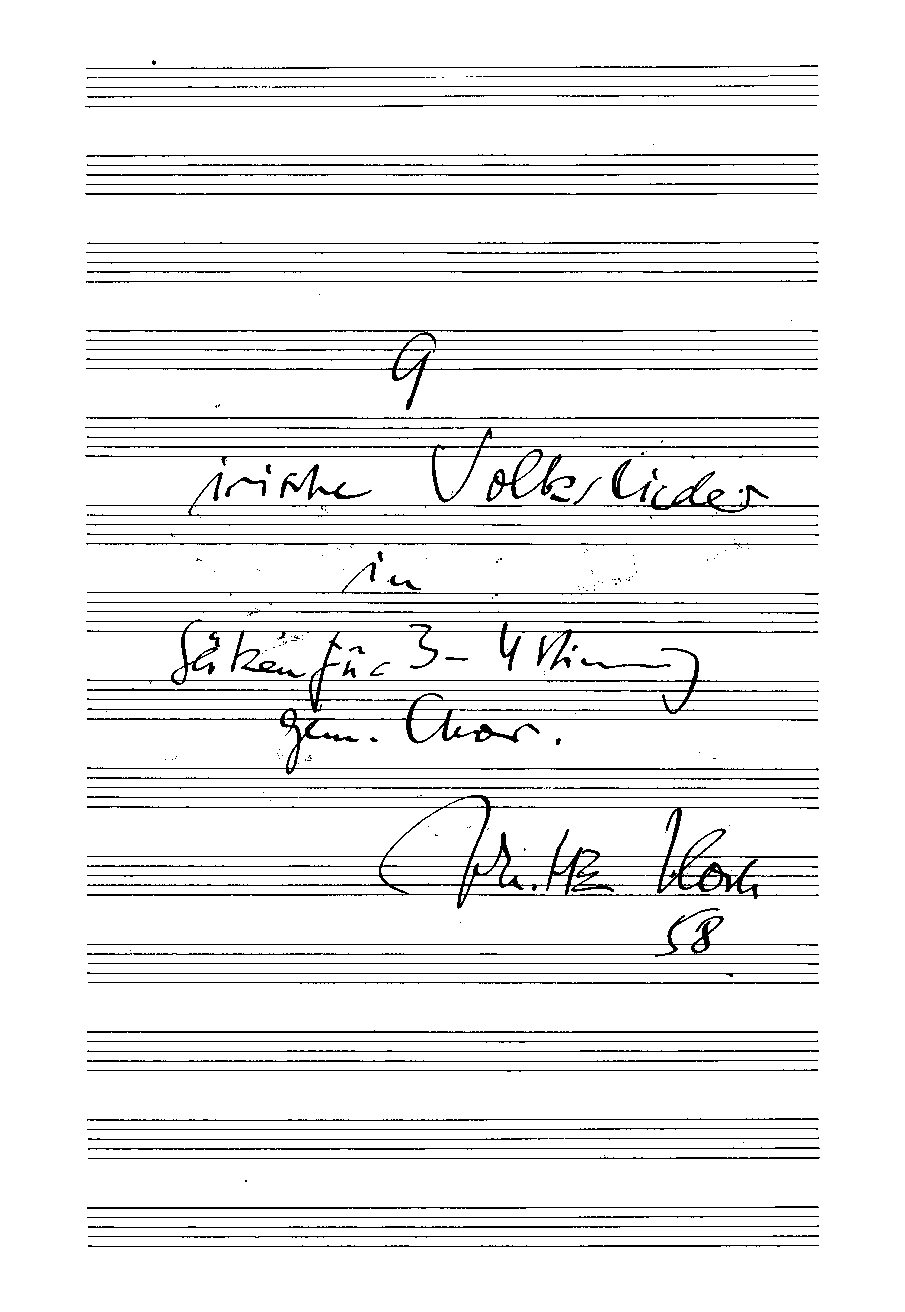 9
irische Volkslieder
in
Sätzen für 3-4 stimmig
gem. Chor.
58